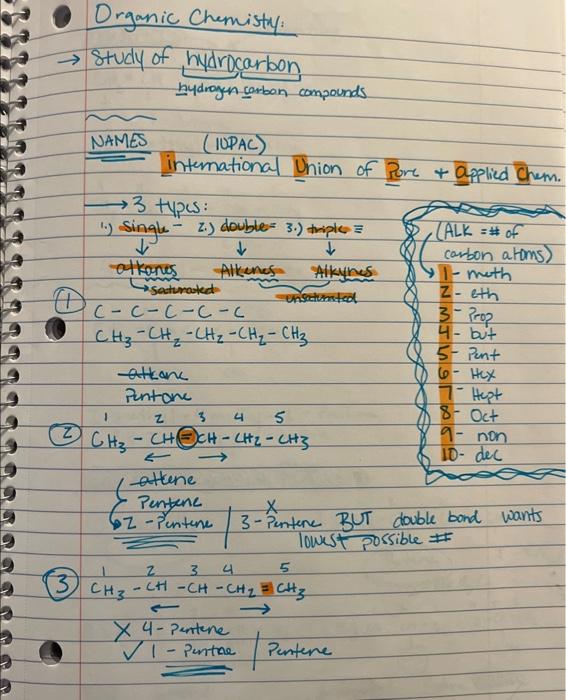 Organic Chemistry:
→ Study of hydrocarbon
hydrogen carbon compounds
NAMES (IUPAC)
International Union of Pure + Applied Chem.
→ 3 types:
1.) single - 2.) double = 3.) triple ≡
↓ ↓ ↓
alkanes Alkenes Alkynes
↳ saturated unsaturated
(ALK = # of
carbon atoms)
1 - meth
2 - eth
3 - Prop
4 - but
5 - Pent
6 - Hex
7 - Hept
8 - Oct
9 - non
10 - dec
① C - C - C - C - C
CH3 - CH2 - CH2 - CH2 - CH3
-alkane
Pentane
1 2 3 4 5
② CH3 - CH = CH - CH2 - CH3
← →
-alkene
Pentene
2 - Pentene | 3 - Pentene BUT double bond wants
X
lowest possible #
1 2 3 4 5
③ CH3 - CH - CH - CH2 = CH3
← →
X 4 - Pentene
✓ 1 - Pentene | Pentene